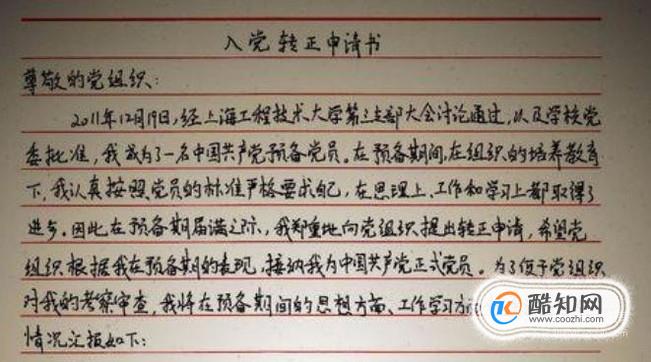 入党转正申请书
尊敬的党组织：
2011年12月19日，经上海工程技术大学第三支部大会讨论通过，以及学校党
委批准，我成为了一名中国共产党预备党员。在预备期间，在组织的培养教育
下，我认真按照党员的标准严格要求自己，在思理上、工作和学习上都取得了
进步。因此在预备期届满之际，我郑重地向党组织提出转正申请，希望党
组织根据我在预备期的表现，接纳我为中国共产党正式党员。为了便于党组织
对我的考察审查，我将在预备期间的思想方面、工作学习方
情况汇报如下：
酷知网
www.coozhi.com